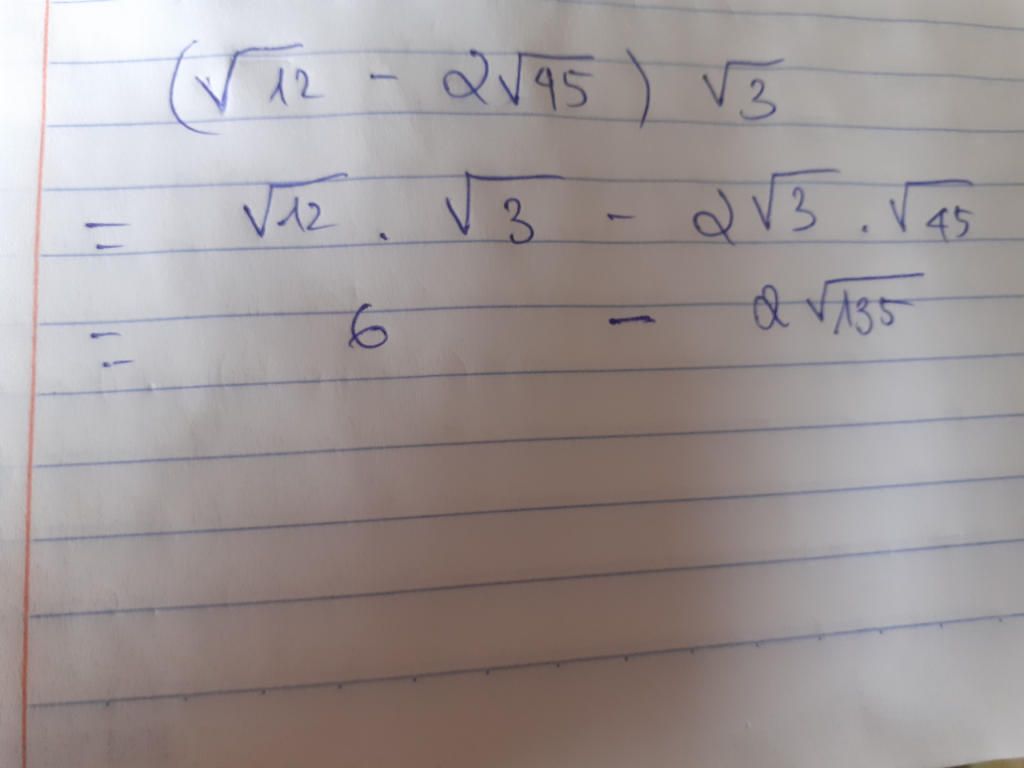 (√12 - 2√45) √3
= √12 . √3 - 2√3 . √45
= 6 - 2√135